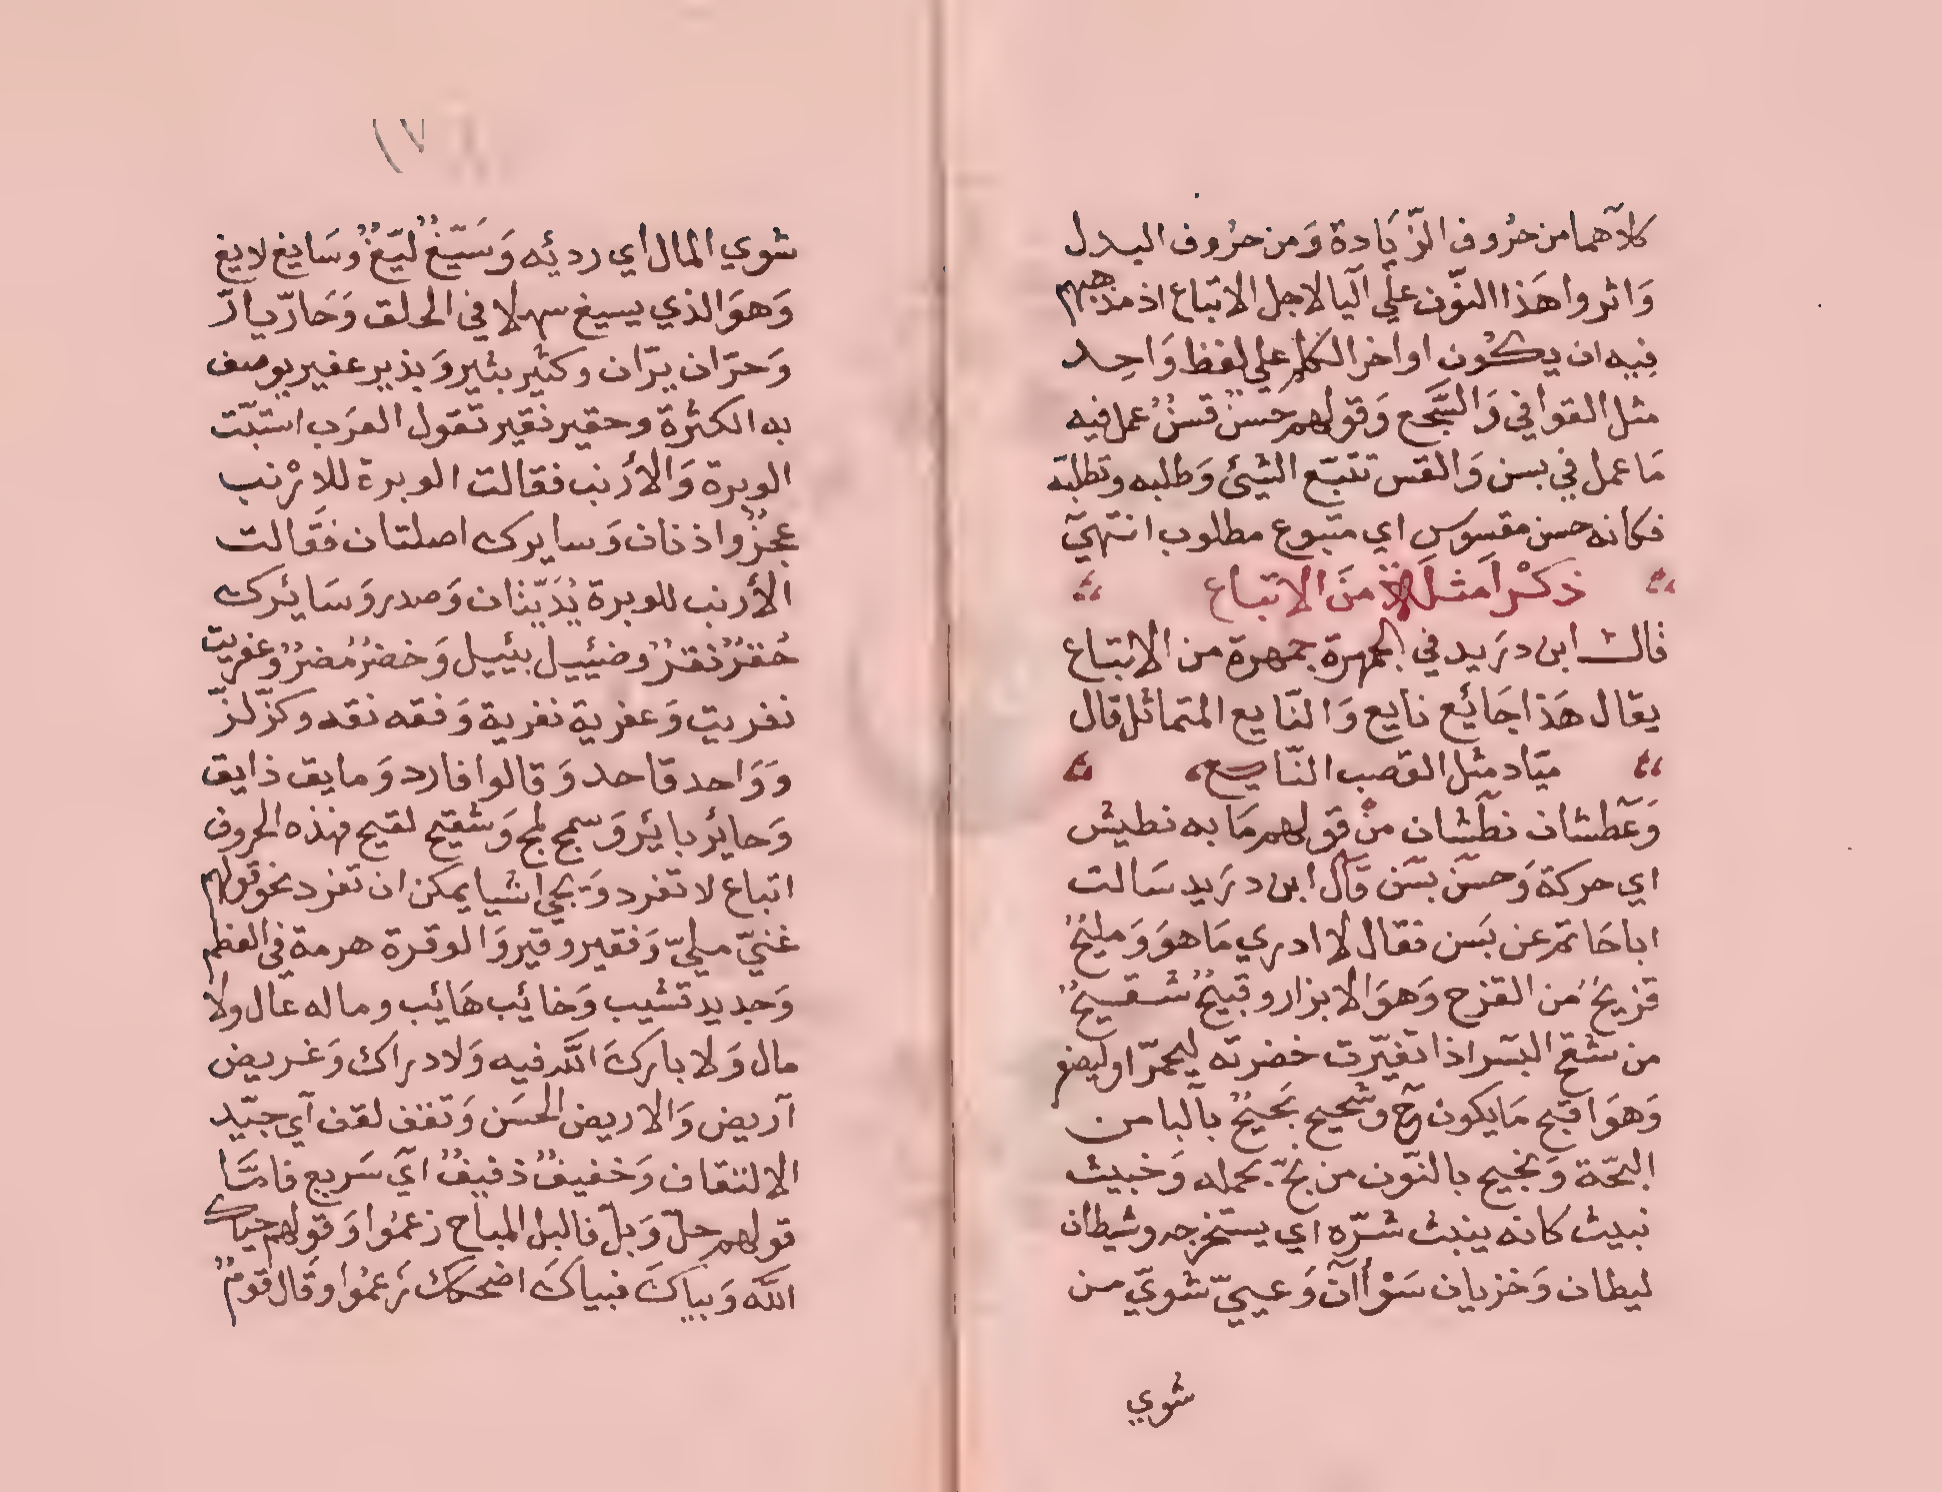 كلاهما من حروف الزّيادة وَمن حرُوف البدل
وَاثروا هَذا النّون علي اليا لاجل الاتباع اذ مذهبهم
فيه ان يكون اواخر الكلم علي لفظ وَاحِد
مثل القوافي وَالسَّجع وَقولهم حَسنٌ قسنٌ عمل فيه
مَا عمل في بسن وَالقس تتبّع الشيئ وَطلبه وتطلبّه
فكانه حسن مقسوس اي متبوع مطلوب انتهيٓ
ذكْر اَمثلَة منَ الاتباع
قالــ ابن دريد في الجمهرة جمهرة من الاتباع
يقال هَذا جَائِع نايع وَالنّايع المتمائل قال
ميّاد مثل القصب النّايع
وَعَطشان نطشان منْ قولهم مَا به نطيش
اي حركة وَحسن بسَن قال ابن دريد سَالت
ابا حَاتم عن بَسن فقال لا ادري مَا هوَ وَمليحٌ
قزيحٌ من القزح وَهوَ الابزار وقبيحٌ شقــيحٌ
من شقح البسر اذا تغيّرت خضرته ليحمرّ او ليصفر
وَهوَ اقبح مَا يكون ح وشحيح بَحيحٌ بالبا من
البحّة وَنحيح بالنّون من نحّ بحمله وَخبيث
نبيث كانه ينبث شرّه اي يستخرجه وشيطان
ليطان وَخزيان سَوْاان وَعييّ شويّ من
شوي
١٧
شوي المال اي رديئه وَسَيّغٌ ليّغٌ وسَايغ لايغ
وَهوَ الذي يسيغ سهلا في الحلق وَحَارّ يارّ
وَحرّان يرّان وكثير بثير وَبذير عفير يوصف
به الكثرة وحقير نقير تقول العرَب استبّت
الوبرة وَالأرنب فقالت الوبرة للارْنب
عجزٌ واذنان وَسايرك اصلتان فقالت
الأرنب للوبرة يُدَيّتان وَصدر وَسَائرك
حُقرٌ نقرٌ وضئييل بئييل وَخضرٌ مُضرٌ وعفريت
نفريت وَعفرية نفرية وَفقه نقه وكزّ لزّ
وَوَاحد قاحد وَقالوا فارد وَمايق ذايق
وَحاير بايئر وَسمج لمج وَشقيح لقيح فهذه الحروف
اتباع لا تفرد وَتجئ اشيا يمكن ان تفرد نحو قولهم
غنيّ مليّ وَفقير وقير وَالوقرة هرمة في العظم
وَجديد قشيب وَخائب هَائب وماله عال ولا
مال وَلا باركَ اللّه فيه وَلا دراك وَغريض
آريض وَالاريض الحسَن وَثقف لقف آي جيّد
الالتقاف وَخفيفٌ ذفيفٌ اي سَريع فامّــا
قولهم حلّ وَبلّ فالبل المباح زعمُوا وَقولهم حيّاك
اللّه وَبياكَ فبياكَ اضحكك زَعمُوا وقال قومٌ